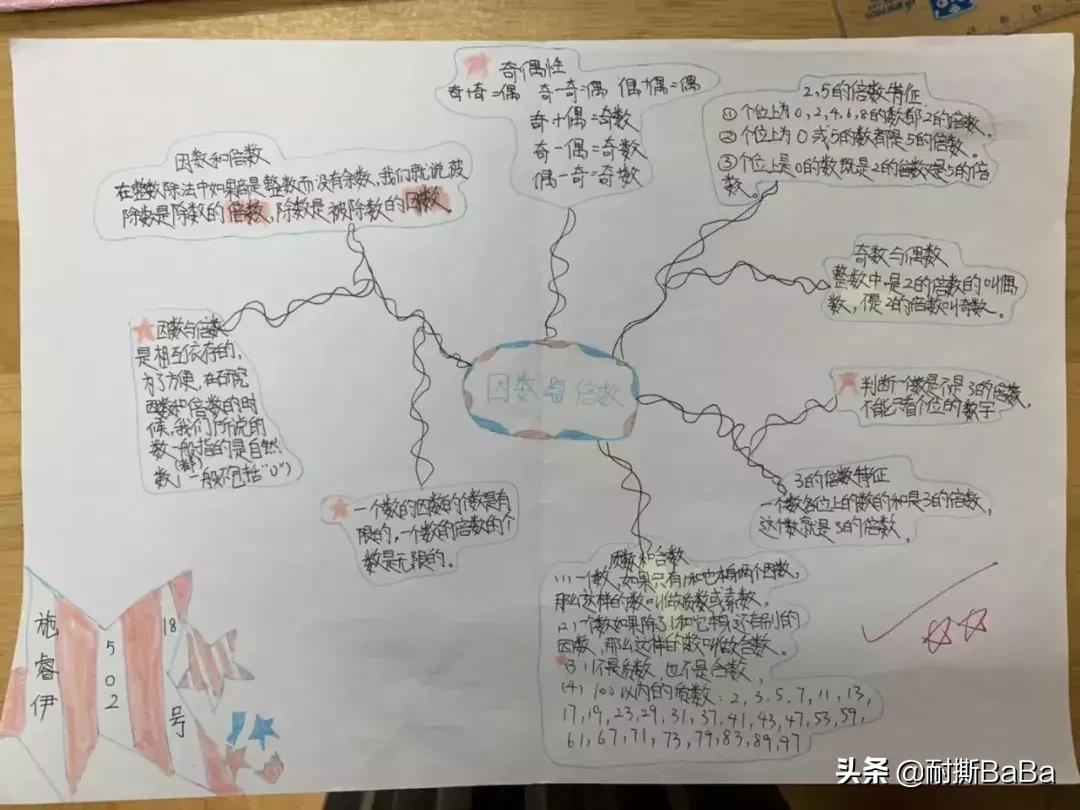 因数与倍数
奇偶性
奇+奇=偶 奇-奇=偶 偶+偶=偶
奇+偶=奇数
奇-偶=奇数
偶-奇=奇数
2,5的倍数特征
① 个位上为0,2,4,6,8的数都2的倍数。
② 个位上为0或5的数都是5的倍数。
③ 个位上是0的数既是2的倍数是5的倍
数。
因数和倍数
在整数除法中如果商是整数而没有余数,我们就说被
除数是除数的倍数,除数是被除数的因数。
奇数与偶数
整数中是2的倍数的叫偶
数,不是2的倍数叫奇数。
因数与倍数
是相互依存的,
为了方便,在研究
因数和倍数的时
候,我们所说的
数一般指的是自然
数(一般不包括"0")
判断一个数是不是3的倍数,
不能只看个位的数字
3的倍数特征
一个数各位上的数的和是3的倍数,
这个数就是3的倍数。
一个数的因数的个数是有
限的,一个数的倍数的个
数是无限的。
质数和合数
(1)一个数,如果只有1和它本身两个因数,
那么这样的数叫做质数或素数。
(2)一个数如果除了1和它本身还有别的
因数,那么这样的数叫做合数。
(3)1不是质数,也不是合数。
(4)100以内的质数:2,3,5,7,11,13,
17,19,23,29,31,37,41,43,47,53,59,
61,67,71,73,79,83,89,97
施睿伊
502
18号
头条 @耐撕BaBa